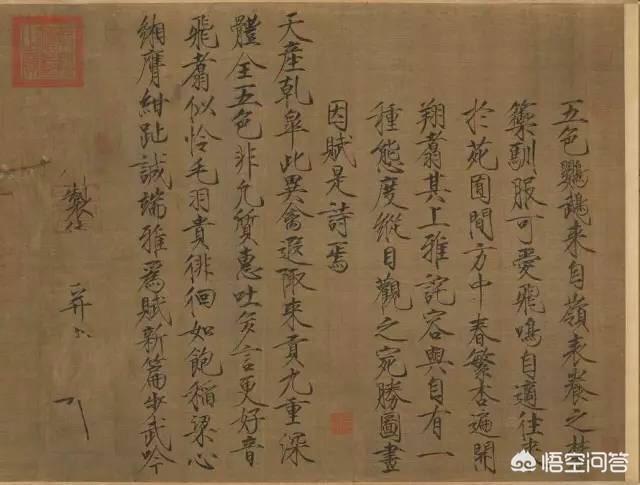 五色鸚鵡来自嶺表養之禁
籞馴服可愛飛鳴自適往来
於苑囿間方中春繁杏遍開
翔翥其上雅詫容與自有一
種態度縱目觀之宛勝圖畫
因賦是詩焉
天産乾皐此異禽遐陬来貢九重深
體全五色非凡質惠吐多言更好音
飛翥似怜毛羽貴徘徊如飽稻粱心
緗膺紺趾誠端雅爲賦新篇步武吟
製
并
悟空问答